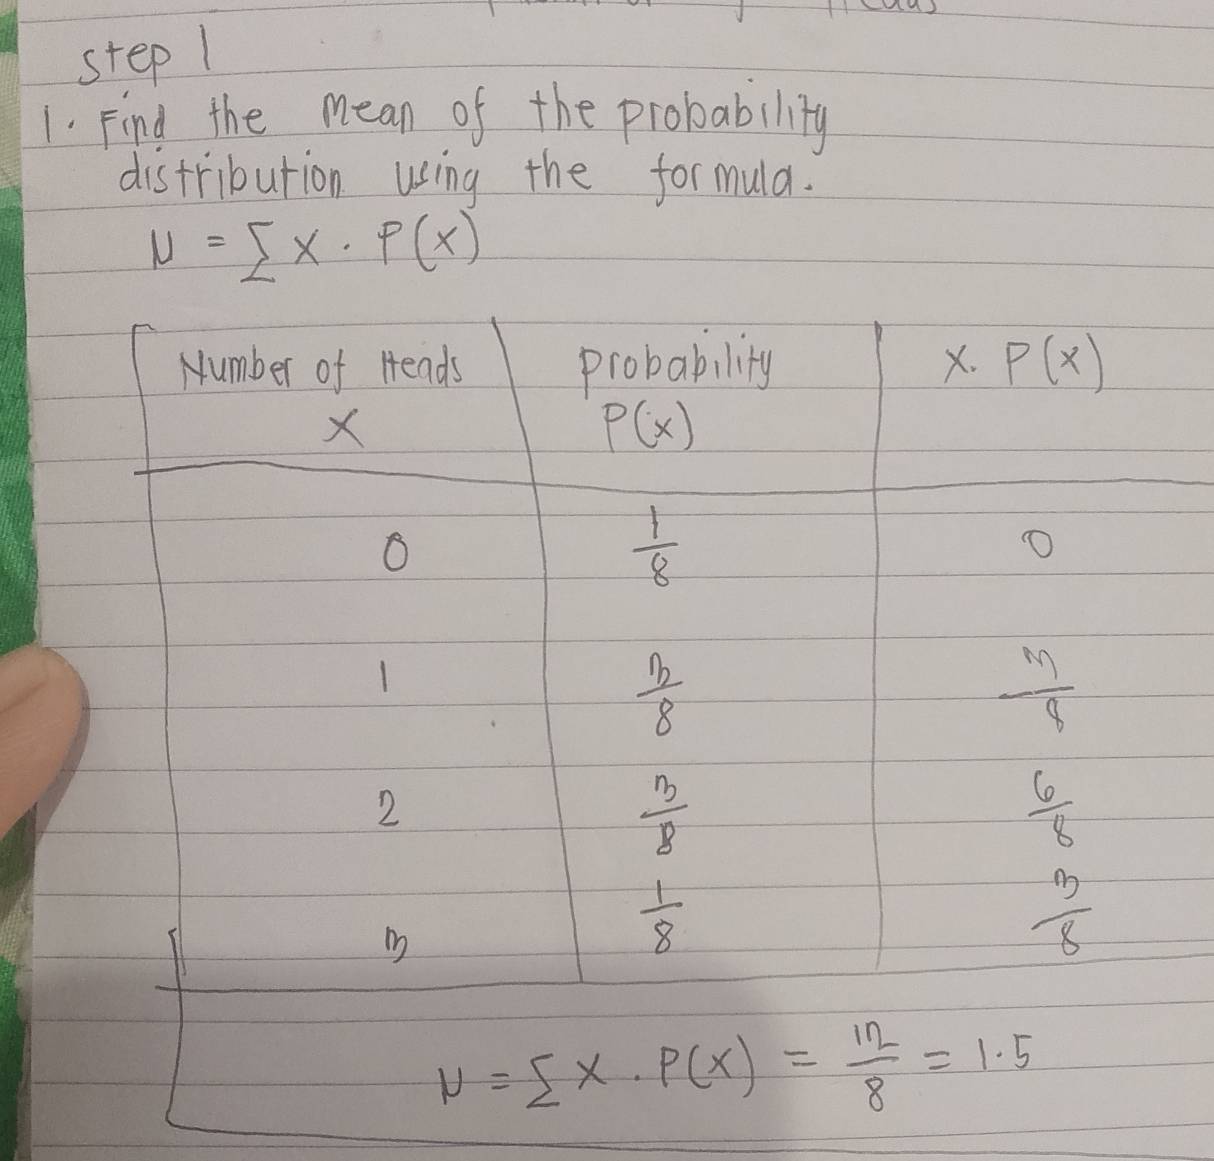 Heads
step 1
1. Find the Mean of the probability
distribution using the formula.
μ = Σ X . P(X)
Number of Heads | probability | X. P(X)
X | P(x)
0 | 1/8 | 0
1 | 3/8 | 3/8
2 | 3/8 | 6/8
3 | 1/8 | 3/8
μ = Σ X . P(X) = 12/8 = 1.5